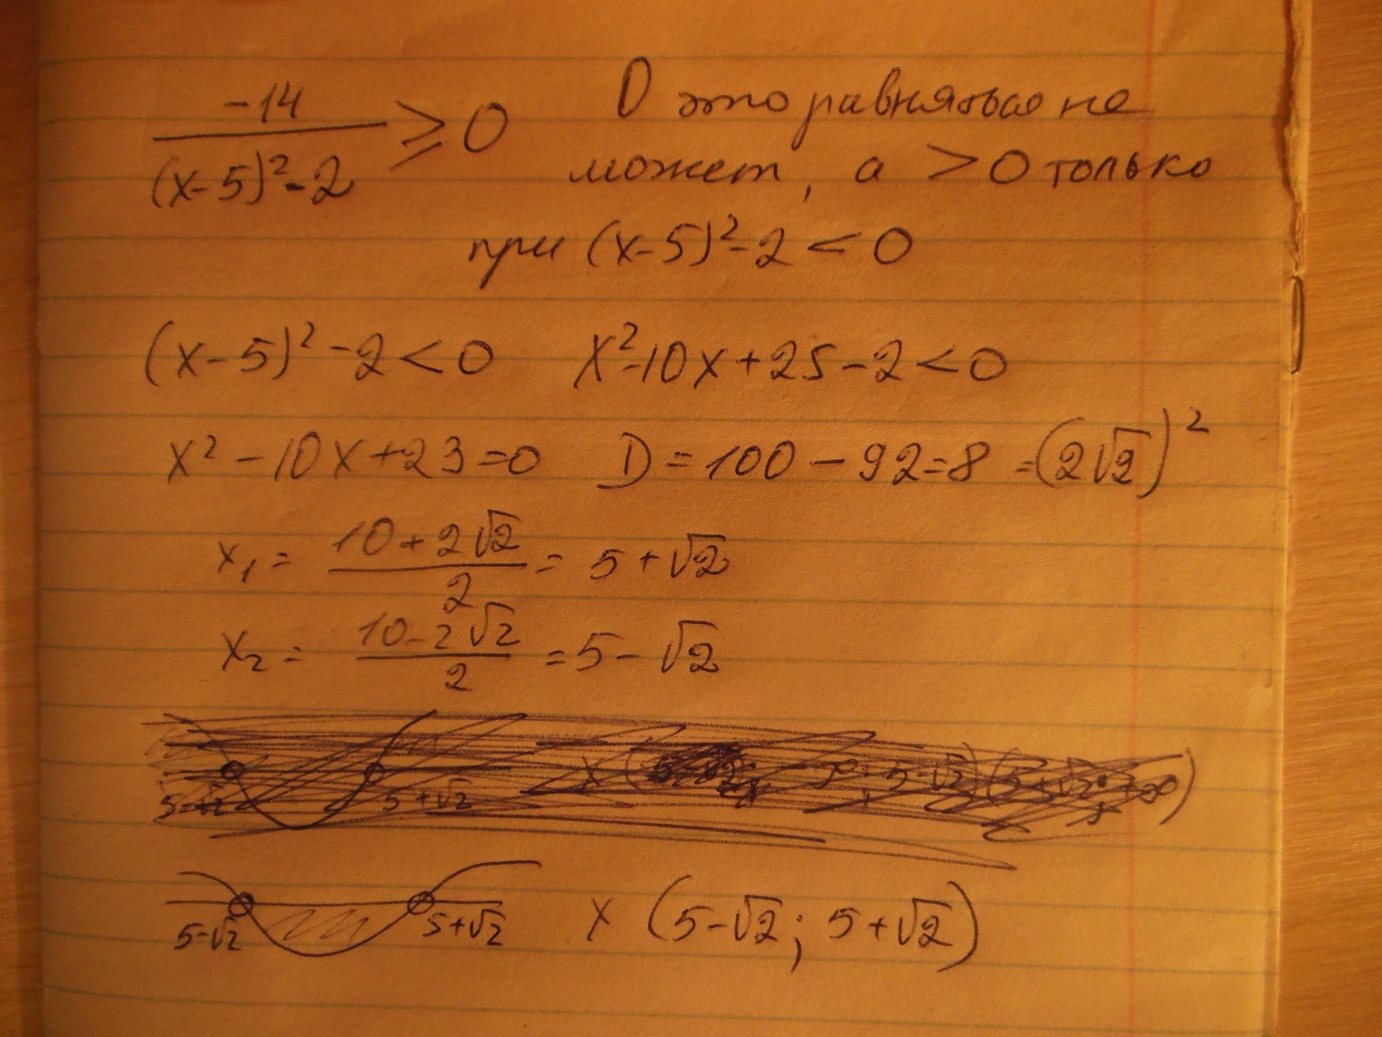 -14 / (x-5)²-2 ≥ 0 0 это равняться не
может, а >0 только
при (x-5)²-2<0
(x-5)²-2<0 x²-10x+25-2<0
x²-10x+23=0 D=100-92=8=(2√2)²
x₁= (10+2√2)/2 = 5+√2
x₂= (10-2√2)/2 = 5-√2
5+√2 x
5-√2 5+√2 x (5-√2; 5+√2)